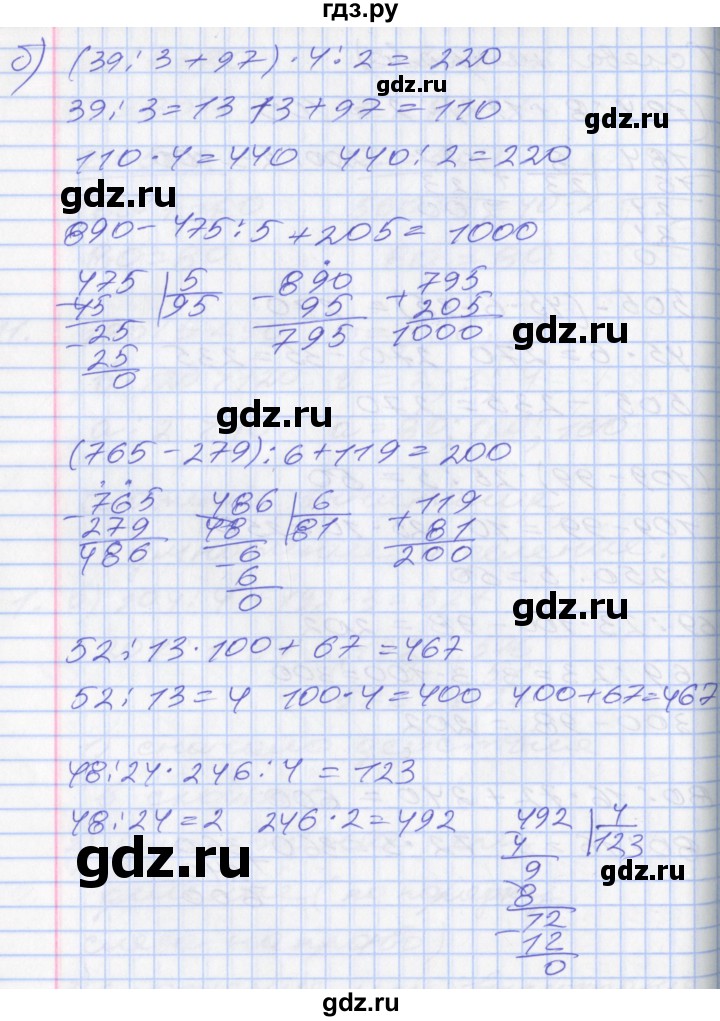 гдз.ру
б) (39 : 3 + 97) · 4 : 2 = 220
gdz.ru
39 : 3 = 13 13 + 97 = 110
gdz.ru
110 · 4 = 440 440 : 2 = 220
gdz.ru
890 - 475 : 5 + 205 = 1000
475 | 5 890 795
- 45 95 - 95 + 205
- 25 795 1000
25
0
gdz.ru
gdz.ru
(765 - 279) : 6 + 119 = 200
- 765 486 | 6 119
279 48 81 + 81
486 - 6 200
6
0
gdz.ru
gdz.ru
52 : 13 · 100 + 67 = 467
52 : 13 = 4 100 · 4 = 400 400 + 67 = 467
48 : 24 · 246 : 4 = 123
48 : 24 = 2 246 · 2 = 492 492 | 4
4 123
gdz.ru
gdz.ru
9
8
- 12
12
0
gdz.ru